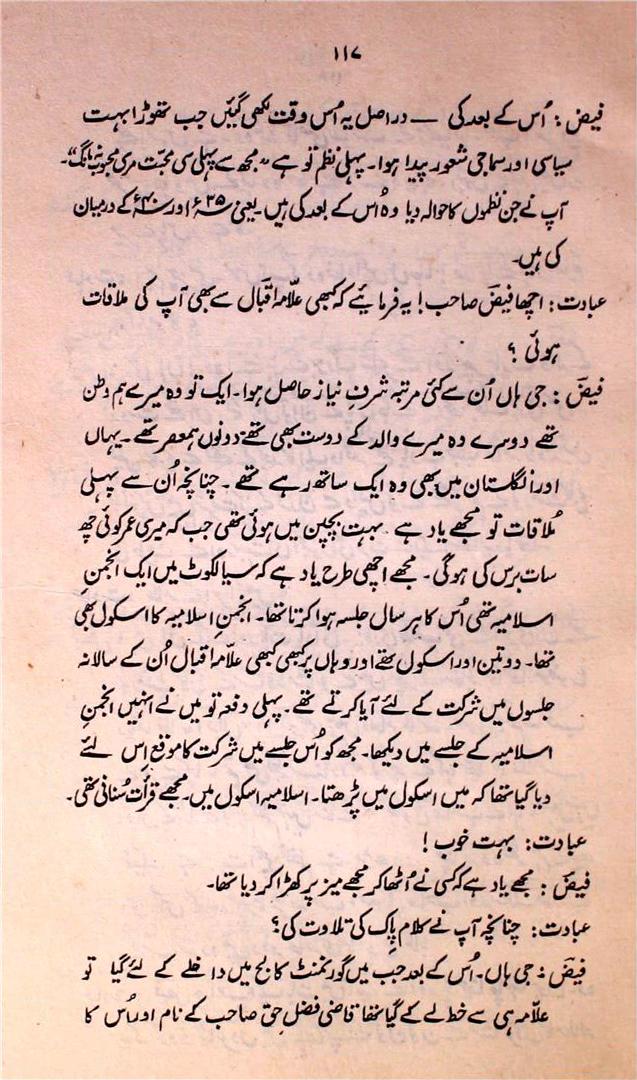 ۱۱۷
فیض : اُس کے بعد کی — دراصل یہ اُس وقت لکھی گئیں جب تھوڑا بہت
سیاسی اور سماجی شعور پیدا ہوا۔ پہلی نظم تو ہے "مجھ سے پہلی سی محبّت مری محبوب نہ مانگ"۔
آپ نے جن نظموں کا حوالہ دیا وہ اُس کے بعد کی ہیں۔ یعنی ۳۵ء اور ۴۰ء کے درمیان
کی ہیں۔
عبادت : اچھا فیضؔ صاحب! یہ فرمائیے کہ کبھی علّامہ اقبالؔ سے بھی آپ کی ملاقات
ہوئی ؟
فیضؔ : جی ہاں اُن سے کئی مرتبہ شرفِ نیاز حاصل ہوا۔ ایک تو وہ میرے ہم وطن
تھے دوسرے وہ میرے والد کے دوست بھی تھے دونوں ہمعصر تھے۔ یہاں
اور انگلستان میں بھی وہ ایک ساتھ رہے تھے ۔ چنانچہ اُن سے پہلی
مُلاقات تو مجھے یاد ہے ۔ بہت بچپن میں ہوئی تھی جب کہ میری عمر کوئی چھ
سات برس کی ہوگی۔ مجھے اچھی طرح یاد ہے کہ سیالکوٹ میں ایک انجمنِ
اسلامیہ تھی اُس کا ہر سال جلسہ ہوا کرتا تھا۔ انجمنِ اسلامیہ کا اسکول بھی
تھا۔ دو تین اور اسکول تھے اور وہاں پر کبھی کبھی علّامہ اقبال اُن کے سالانہ
جلسوں میں شرکت کے لئے آیا کرتے تھے۔ پہلی دفعہ تو میں نے انہیں انجمنِ
اسلامیہ کے جلسے میں دیکھا۔ مجھ کو اُس جلسے میں شرکت کا موقع اِس لئے
دیا گیا تھا کہ میں اسکول میں پڑھتا۔ اسلامیہ اسکول میں۔ مجھے قرأت سُنانی تھی۔
عبادت : بہت خوب !
فیضؔ : مجھے یاد ہے کہ کسی نے اُٹھا کر مجھے میز پر کھڑا کر دیا تھا۔
عبادت : چنانچہ آپ نے کلامِ پاک کی تلاوت کی؟
فیضؔ : جی ہاں۔ اُس کے بعد جب میں گورنمنٹ کالج میں داخلے کے لئے گیا تو
علّامہ ہی سے خط لے کے گیا تھا قاضی فضل حق صاحب کے نام اور اُس کا